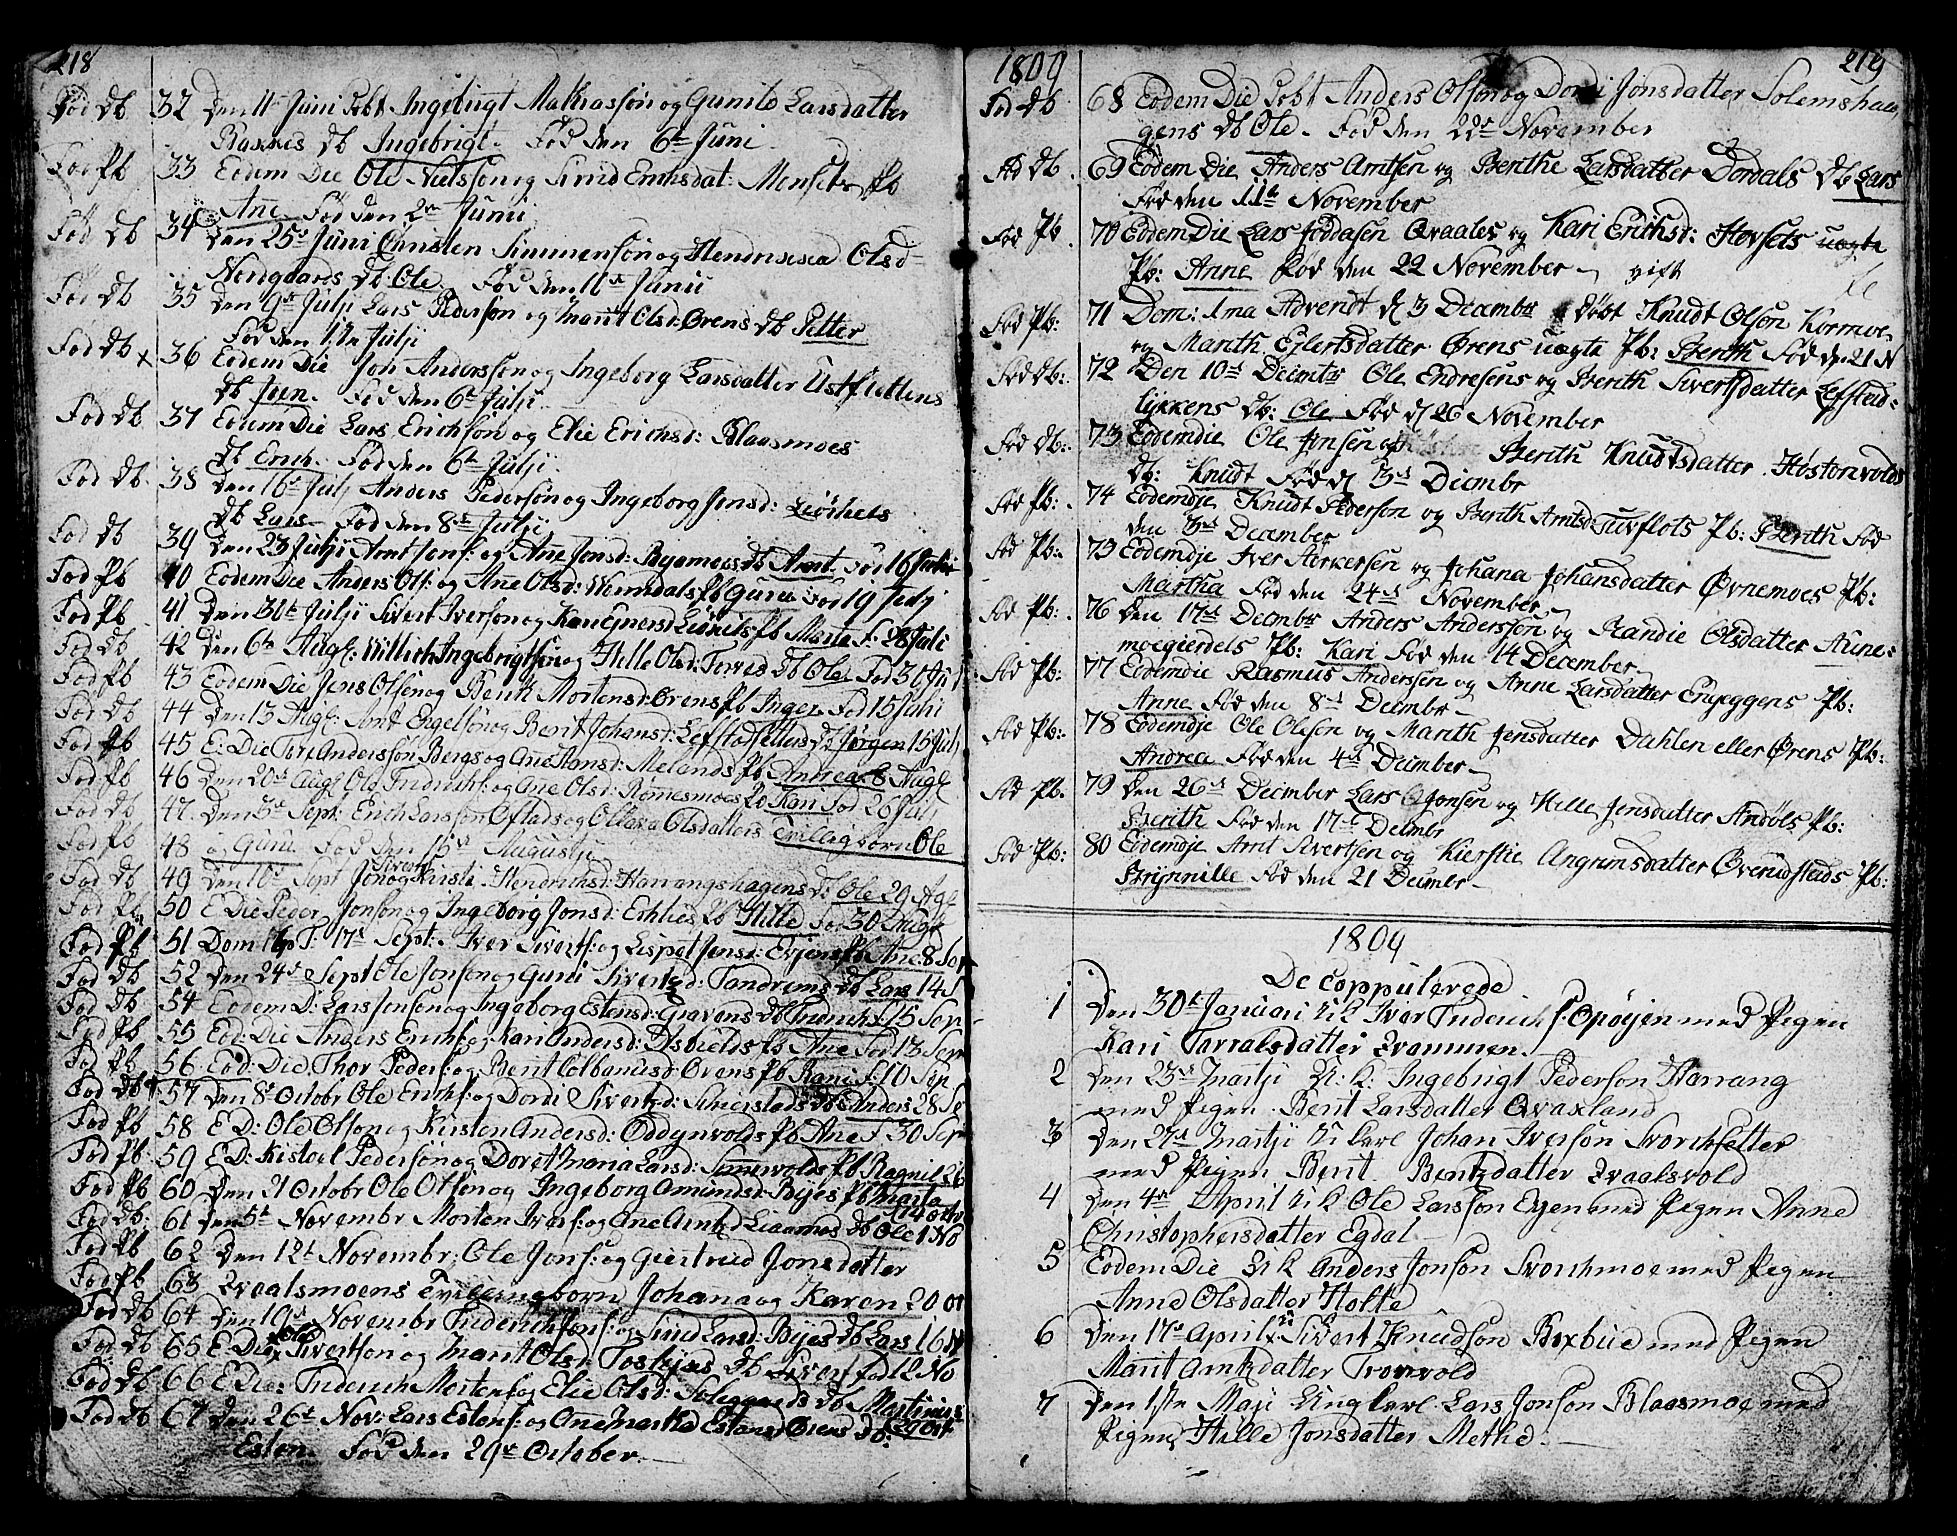 218
Fød db 32 Den 11te Juni Døbt Ingebrigt Mathiassøn og Gunild Larsdatter
Raanes db Ingebrigt. Fød den 6te Juni
Fød Pb 33 Eodem Die Ole Nielsøn og Sirid Erichsdat: Monsets Pb
Ane Fød den 2en Junii
Fød db 34 Den 25de Juni Christen Simmensøn og Hendricca Olsd
db Ole Fød den 11te Junii
Fød db 35 Den 9de Julji Lars Pedersøn og Marit Olsd: Ørens db Petter
Fød den 1te Julji
Fød db 36 Eodem Die Jon Anderssøn og Ingeborg Larsdatter Ustflettens
db Joen. Fød den 6te Julji
Fød db 37 Eodem Die Lars Erichsøn og Elie Erichsd: Blaasmoes
db Erich. Fød den 6te Julji.
Fød db 38 Den 16de Julj Anders Pedersøn og Ingeborg Jonsd:
db Lars. Fød den 8de Julji
Fød db 39 Den 23 Julji Arnt Jonsf: og Ane Jonsd: db Arnt. Fød 16 Julii
Fød Pb 40 Eodem Die Anders Olsf: og Ane Olsd: Pb Guru Fød 19 Julj
Fød Pb 41 Den 30te Julji Sivert Iversøn og Pb Marit F: 28 Juli
Fød db 42 Den 6te Augf: Willich Ingebrigtsøn og Hille Olsd: db Ole Fød 31 Jul
Fød Pb 43 Eodem Die Jens Olsøn og Berit Mortensd: Ørens Pb Inger Fød 15 Juli
Fød db 44 Den 13 Augf: Arnt Engelsøn og Berit Johansd: db Jørgen 15 Julj
Fød Pb 45 E: Die Tore Andersøn Bergs og Ane Monsd: Melands Pb 8 Augf
Fød Pb 46 Den 20de Augf Ole Fridrichsf: og Ane Olsd: Romesmoes Pb Kari Fød 26 Julj
Fød db 47 Den 3de Sept: Erich Larssøn Oftads og Ollava Olsdatters Tvillingbørn Ole
Fød Pb 48 og Guru Fød den Augustj
Fød db 49 Den 10de Sept Jon Sivers og Kirsti Hendrichsd: Harrangshagens db Ole 29 Agf
Fød Pb 50 E Die Peder Jonsøn og Ingeborg Jonsd: Pb Hille Fød 30 Augf
Fød Pb 51 Dom T: 17de Sept: Iver Sivertsf: og Lispet Jensd: Evjens Pb Ane 8 Sep
Fød db 52 Den 24de Sept Ole Jonsøn og Guru Sivertsd: db Lars 14 S
Fød db 54 Eodem D: Lars Jonsøn og Ingeborg Estensd: Gravens db 15 Sep
Fød Pb 55 Eod: Die Anders Erichsf: og Kari Andersd: Pb Ane Fød 13 Sep
Fød Pb 56 Eod: Die Thor Peders: og Berit Colbanusd: Ørens Pb Kari F: 10 Sep
Fød db 57 Den 8de Octobr Ole Erichsf: og Dordi Sivertsd: db Anders 28 Se
Fød Pb 58 E D: Ole Olsøn og Kirsten Andersd: Oddynvolds Pb Ane F 30 Sep
Fød Pb 59 E D: Kistoel Pedersøn og Doret Maria Larsd: Pb Ragnil 26
Fød Pb 60 Den 21 Octobr Ole Olsøn og Ingeborg Amundsd: Byes Pb Marta
14 Octb
Fød db: 61 Den 5te Novembr Morten Iversf: og Ane Arntsd db Ole 1 No
Fød Pb 62 Den 12te Novembr: Ole Jonsf: og Giertrud Jonsdatter
Fød Pb 63 Qvaalsmoens Tvillingbørn Johana og Karen 20 Oct
Fød db 64 Den 19de Novembr Friderich Jonsf: og Siri Larsd: Byes db Lars 16 N
Fød db 65 E Die Ole Sivertsøn og Marit Olsd: db Siver Fød 12 No
Fød db 66 E Die: Friderich Mortensf og Elie Olsd: Solegaards db Martinus
Fød db 67 Den 26te Nov: Lars Estensf: og Ane Marthe Estensd Ørens db: 29 Oct
Esten Fød den 29de October.
1809
219
Fød db 68 Eodem Die Døbt Anders Olsøn og Dordi Jonsdatter Solemshau
gens db Ole. Fød den 22de November
Fød db. 69 Eodem Die Anders Arntsen og Berithe Larsdatter Dordals db Lars
Fød den 11te November
Fød Pb. 70 Eodem Die Lars Qvaales og Kari Erichsd: Horsets uægte
Pb: Anne Fød den 22 November gift
Fød Pb: 71 Dom: 1ma Advendt d 3 Decembr Døbt Knudt Olsøn Kormoe
og Marith Ejlertsdatter Ørens uægte Pb: Berith Fød den 21 N
Fød db: 72 Den 10de Decembr Ole Endresens og Berith Sivertsdatter Lefstad-
lykkens db: Ole Fød d 26 November
Fød db: 73 Eodemdie Ole Jonsen og Berith Knudtsdatter Høstonvolds
db: Knudt Fød d 3de Decembr
Fød Pb: 74 Eodemdje Knudt Pederson og Berith Arntsd: Pb: Berith Fød
den 3de December
Fød Pb: 75 Eodemdje Iver Torkersen og Johana Johansdatter Ørnemoes Pb:
Martha Fød den 24de November
Fød Pb: 76 Den 17de Decembr Anders Anderssøn og Randie Olsdatter Aune-
moegierdets Pb: Kari Fød den 14 December
Fød Pb: 77 Eodemdie Rasmus Anderssen og Anne Larsdatter Engeggens Pb:
Anne Fød den 8de Decembr
Fød Pb: 78 Eodemdje Ole Olsøn og Marith Jensdatter Dahlen eller Ørens Pb:
Andrea Fød den 4de December
Fød Pb. 79 Den 26de December Lars Jonsen og Hille Jensdatter Andøls Pb:
Berith Fød den 17de Decembr
Fød Pb: 80 Eodemdje Arnt Sivertsen og Kierstie Angrimsdatter Pb:
Brynnille Fød den 21 Decembr
1809
De coppulerede
1 Den 30te Januari U:K Iver Friderichsf: Opøjen med Pigen
Kari Tarralsdatter Qvammen.
2 Den 23de Martji U: K: Ingebrigt Pedersøn Harrang
med Pigen Berit Larsdatter Qvaxland
3 Den 27de Martji U Karl Johan Iversøn Svorchsetter
med Pigen Berit Bentzdatter Qvaalsvold
4 Den 4de April U K Ole Larssøn Evjen med Pigen Anne
Christophersdatter Egdal
5 Eodem Die U K Anders Jonsøn Svorchmoe med Pigen
Anne Olsdatter Holte
6 Den 17de April Sivert Knudsøn Boxbue med Pigen
Marit Arntzdatter Tronvold
7 Den 1ste Maji Ungkarl Lars Jonsøn Blaasmoe med
Pigen Hille Jonsdatter Methe.